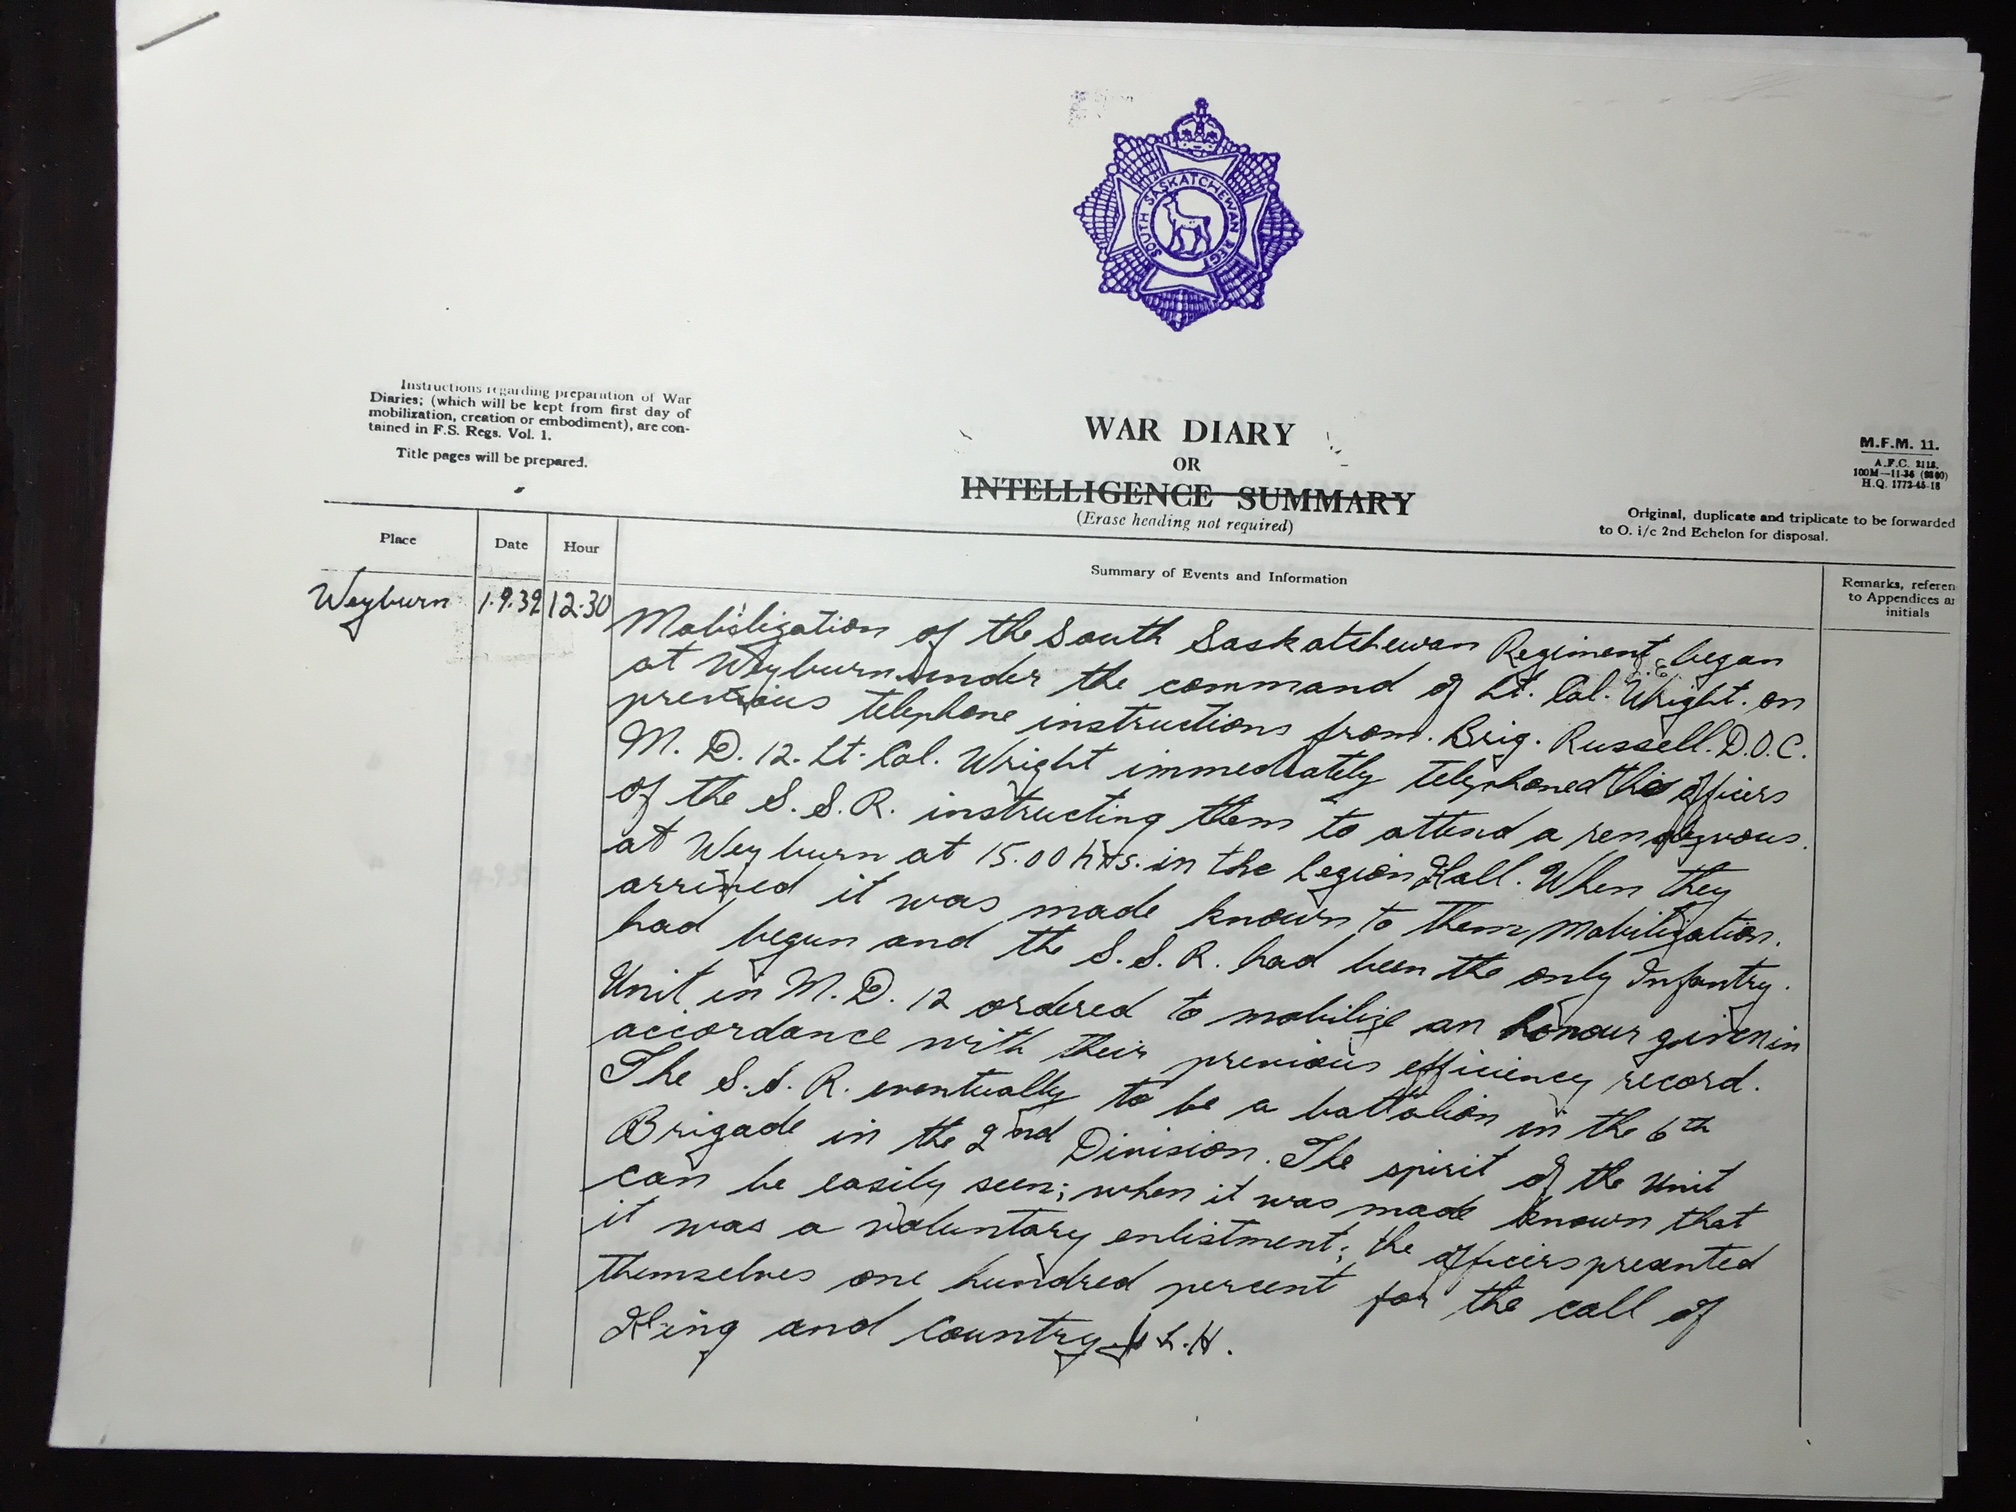 SOUTH SASKATCHEWAN REGT
Instructions regarding preparation of War
Diaries; (which will be kept from first day of
mobilization, creation or embodiment), are con-
tained in F.S. Regs. Vol. 1.
Title pages will be prepared.
WAR DIARY
OR
INTELLIGENCE SUMMARY
(Erase heading not required)
M.F.M. 11.
A.F.C. 2118.
100M—11-36 (9860)
H.Q. 1772-45-18
Original, duplicate and triplicate to be forwarded
to O. i/c 2nd Echelon for disposal.
Place Date Hour Summary of Events and Information Remarks, referen
to Appendices a
initials
Weyburn 1.9.39 12.30 Mobilization of the South Saskatchewan Regiment began
at Weyburn under the command of Lt. Col. Wright. on
previous telephone instructions from. Brig. Russell. D.O.C.
M. D. 12. Lt. Col. Wright immediately telephoned the officers
of the S. S. R. instructing them to attend a rendezvous.
at Weyburn at 15.00 hrs. in the Legion Hall. When they
arrived it was made known to them mobilization.
had begun and the S. S. R. had been the only Infantry.
Unit in M. D. 12 ordered to mobilize an honour given in
accordance with their previous efficiency record.
The S. S. R. eventually to be a battalion in the 6th
Brigade in the 2nd Division. The spirit of the Unit
can be easily seen; when it was made known that
it was a voluntary enlistment; the officers presented
themselves one hundred percent for the call of
King and Country L.H.